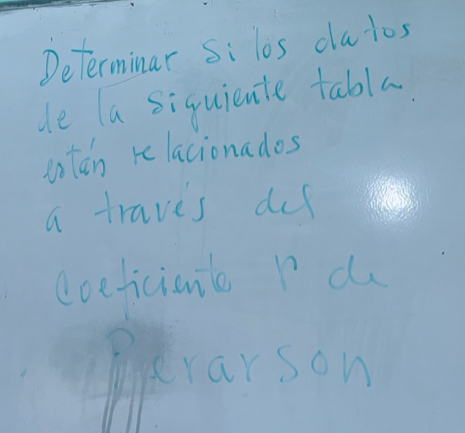 Determinar si los datos
de la siguiente tabla.
están relacionados
a través del
coeficiente r de
Perarson